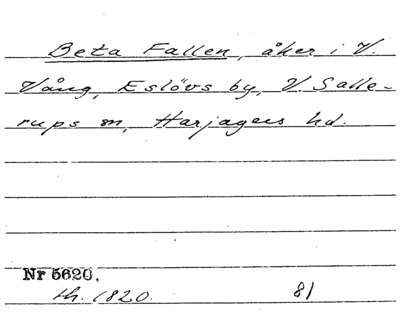 Beta Fallen, åker i V.
Vång, Eslövs by, V. Salle-
rups sn, Harjagers hd.
Nr 5620.
th. 1820. 81